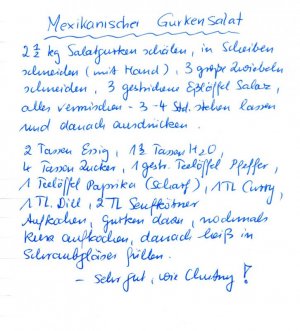 Mexikanischer Gurkensalat
2 1/2 kg Salatgurken schälen, in Scheiben
schneiden (mit Hand), 3 große Zwiebeln
schneiden, 3 gestrichene Eßlöffel Salz,
alles vermischen - 3-4 Std. stehen lassen
und danach ausdrücken.
2 Tassen Essig, 1 1/2 Tassen H2O,
4 Tassen Zucker, 1 gestr. Teelöffel Pfeffer,
1 Teelöffel Paprika (Scharf), 1 TL Curry,
1 TL. Dill, 2 TL Senfkörner
Aufkochen, gurken dazu, nochmals
kurz aufkochen, danach heiß in
Schraubgläser füllen.
- Sehr gut, wie Chutney!